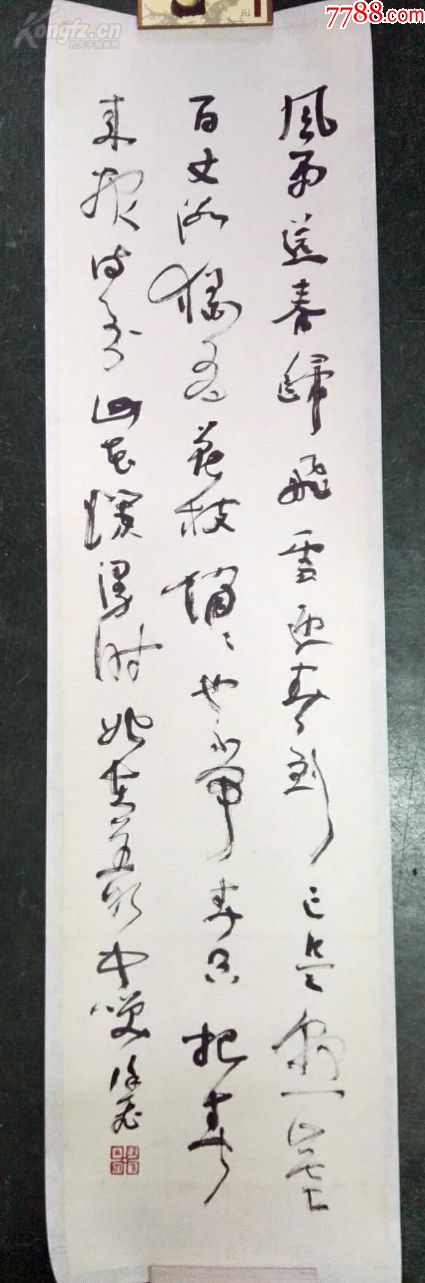 7788.com
Kongfz.cn
风雨送春歸飛雪迎春到已是懸崖
百丈冰猶有花枝俏〻也不争春只把春
来報待到山花爛漫时她在叢中笑